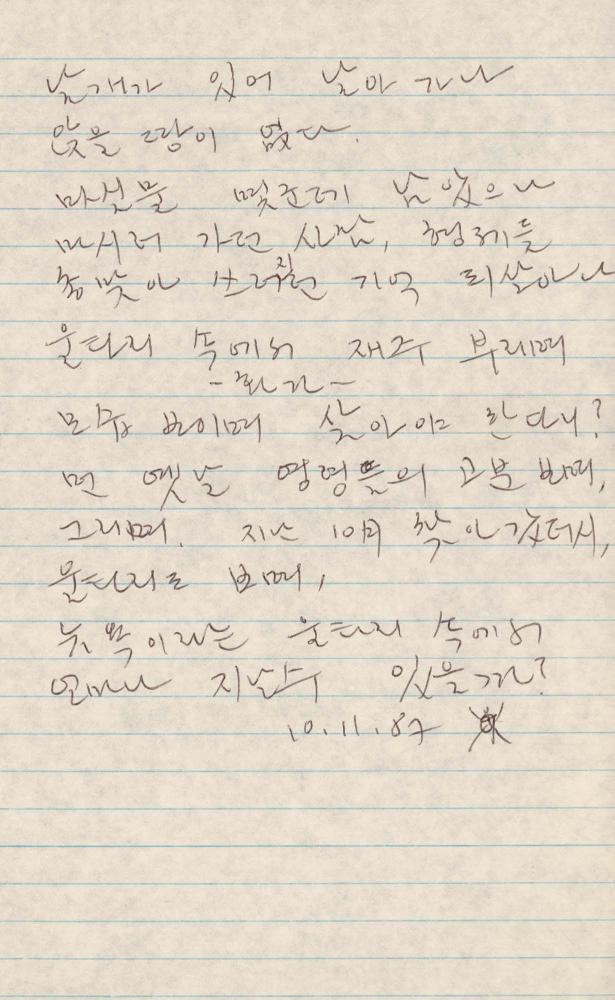 날개가 있어 날아 가나
앉을 땅이 없다.
마실물 몇군데 남았으나
마시러 가던 사람, 형제들
총맞아 쓰러진 기억 되살아나
울타리 속에서 재주 부리며
모습 보이며 살아야 한다니?
먼 옛날 영영들의 고분 보며,
그리며. 지난 10月 찾아 갔더니,
울타리로 보며,
뉴욕이라는 울타리 속에서
얼마나 지날수 있을가?
10.11.87